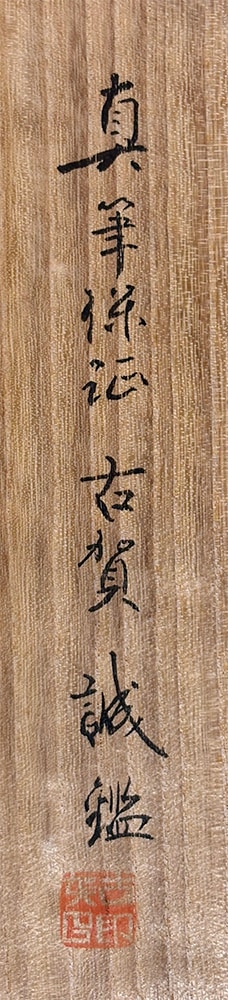 真筆保証 古賀 誠鑑